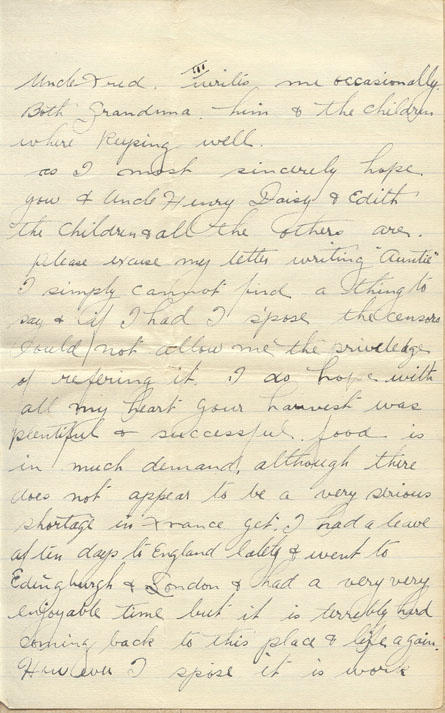 III
Uncle Fred. writes me occasionally.
Both Grandma him & the children
where keeping well.
as I most sincerely hope
you & Uncle Henry Daisy & Edith
the children & all the others are.
please excuse my letter writing "Auntie"
I simply cannot find a thing to
say & if I had I spose the censors
would not allow me the priveledge
of refering it. I do hope with
all my heart your harvest was
plentiful & successful. food is
in much demand, although there
does not appear to be a very serious
shortage in France yet. I had a leave
of ten days to England lately & went to
Edingburgh & London & had a very very
enjoyable time but it is terribly hard
coming back to this place & life again.
However I spose it is work